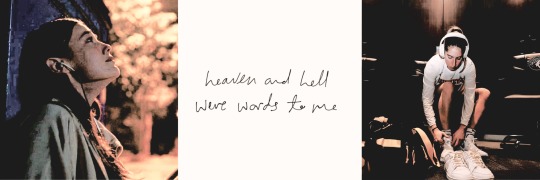 heaven and hell
were words to me